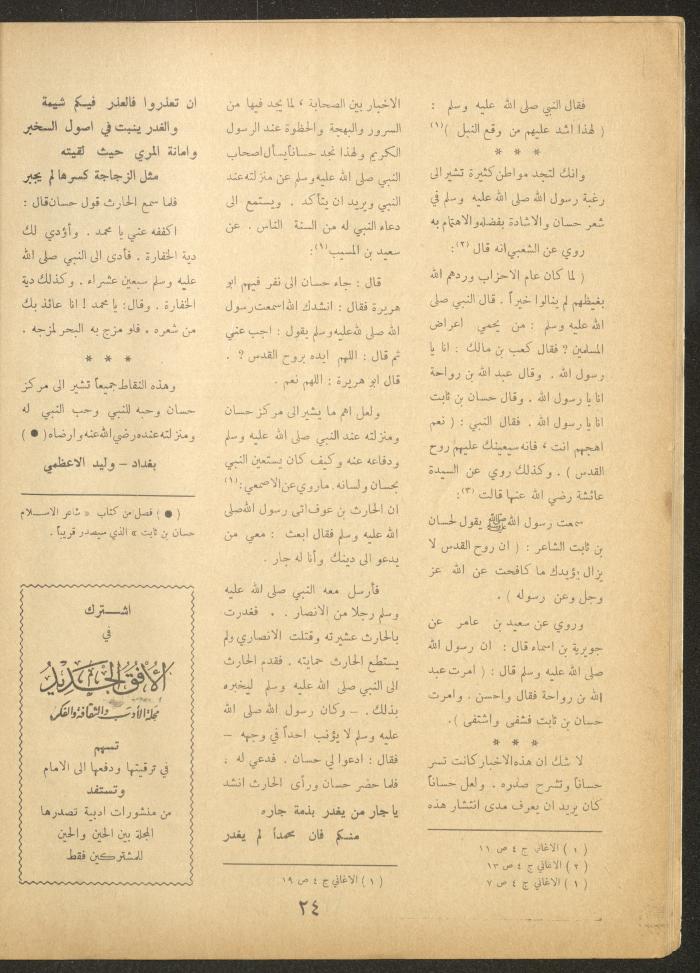 فقال النبي صلى الله عليه وسلم :
( لهذا اشد عليهم من وقع النبل )(١)
* * *
وانك لتجد مواطن كثيرة تشير الى
رغبة رسول الله صلى الله عليه وسلم في
شعر حسان والاشادة بفضله والاهتمام به
روي عن الشعبي انه قال (٢):
( لما كان عام الاحزاب وردهم الله
بغيظهم لم ينالوا خيراً . قال النبي صلى
الله عليه وسلم : من يحمي اعراض
المسلمين ? فقال كعب بن مالك : انا يا
رسول الله . وقال عبد الله بن رواحة
انا يا رسول الله . وقال حسان بن ثابت
انا يا رسول الله . فقال النبي : ( نعم
اهجهم انت ، فانه سيعينك عليهم روح
القدس ) . وكذلك روي عن السيدة
عائشة رضي الله عنها قالت (٣):
سمعت رسول الله ﷺ يقول لحسان
بن ثابت الشاعر : ( ان روح القدس لا
يزال يؤيدك ما كافحت عن الله عز
وجل وعن رسوله ) .
وروي عن سعيد بن عامر عن
جويرية بن اسماء قال : ان رسول الله
صلى الله عليه وسلم قال : ( امرت عبد
الله بن رواحة فقال واحسن . وامرت
حسان بن ثابت فشفى واشتفى ) .
* * *
لا شك ان هذه الاخبار كانت تسر
حساناً وتشرح صدره . ولعل حساناً
كان يريد ان يعرف مدى انتشار هذه
( ١ ) الاغاني ج ٤ ص ١١
( ٢ ) الاغاني ج ٤ ص ١٣
( ١ ) الاغاني ج ٤ ص ٧
الاخبار بين الصحابة ، لما يجد فيها من
السرور والبهجة والحظوة عند الرسول
الكريم ولهذا نجد حساناً يسأل اصحاب
النبي صلى الله عليه وسلم عن منزلته عند
النبي ويريد ان يتأكد . ويستمع الى
دعاء النبي له من السنة الناس . عن
سعيد بن المسيب(١):
قال : جاء حسان الى نفر فيهم ابو
هريرة فقال : انشدك الله اسمعت رسول
الله صلى الله عليه وسلم يقول : اجب عني
ثم قال : اللهم ايده بروح القدس ? .
قال ابو هريرة : اللهم نعم .
ولعل اهم ما يشير الى مركز حسان
ومنزلته عند النبي صلى الله عليه وسلم
ودفاعه عنه وكيف كان يستعين النبي
بحسان ولسانه . ما روي عن الاصمعي:(١)
ان الحارث بن عوف اتى رسول الله صلى
الله عليه وسلم فقال ابعث : معي من
يدعو الى دينك وأنا له جار .
فأرسل معه النبي صلى الله عليه
وسلم رجلا من الانصار . . فغدرت
بالحارث عشيرته وقتلت الانصاري ولم
يستطع الحارث حمايته . فقدم الحارث
الى النبي صلى الله عليه وسلم ليخبره
بذلك . — وكان رسول الله صلى الله
عليه وسلم لا يؤنب احداً في وجهه —
فقال : ادعوا لي حسان . فدعي له ،
فلما حضر حسان ورأى الحارث انشد
يا جار من يغدر بذمة جاره
منكم فان محمداً لم يغدر
( ١ ) الاغاني ج ٤ ص ١٩
ان تعذروا فالعذر فيكم شيمة
والغدر ينبت في اصول السخبر
وامانة المري حيث لقيته
مثل الزجاجة كسرها لم يجبر
فلما سمع الحارث قول حسان قال :
اكففه عني يا محمد . وأؤدي لك
دية الخفارة . فأدى الى النبي صلى الله
عليه وسلم سبعين عشراء . وكذلك دية
الخفارة . وقال: يا محمد ! انا عائذ بك
من شعره . فلو مزج به البحر لمزجه .
* * *
وهذه النقاط جميعاً تشير الى مركز
حسان وحبه للنبي وحب النبي له
ومنزلته عنده رضي الله عنه وارضاه ( ● )
بغداد – وليد الاعظمي
( ● ) فصل من كتاب « شاعر الاسلام
حسان بن ثابت » الذي سيصدر قريباً .
اشترك
في
الأفق الجديد
مجلة الأدب والثقافة والفكر
تسهم
في ترقيتها ودفعها الى الامام
وتستفد
من منشورات ادبية تصدرها
المجلة بين الحين والحين
للمشتركين فقط
٢٤